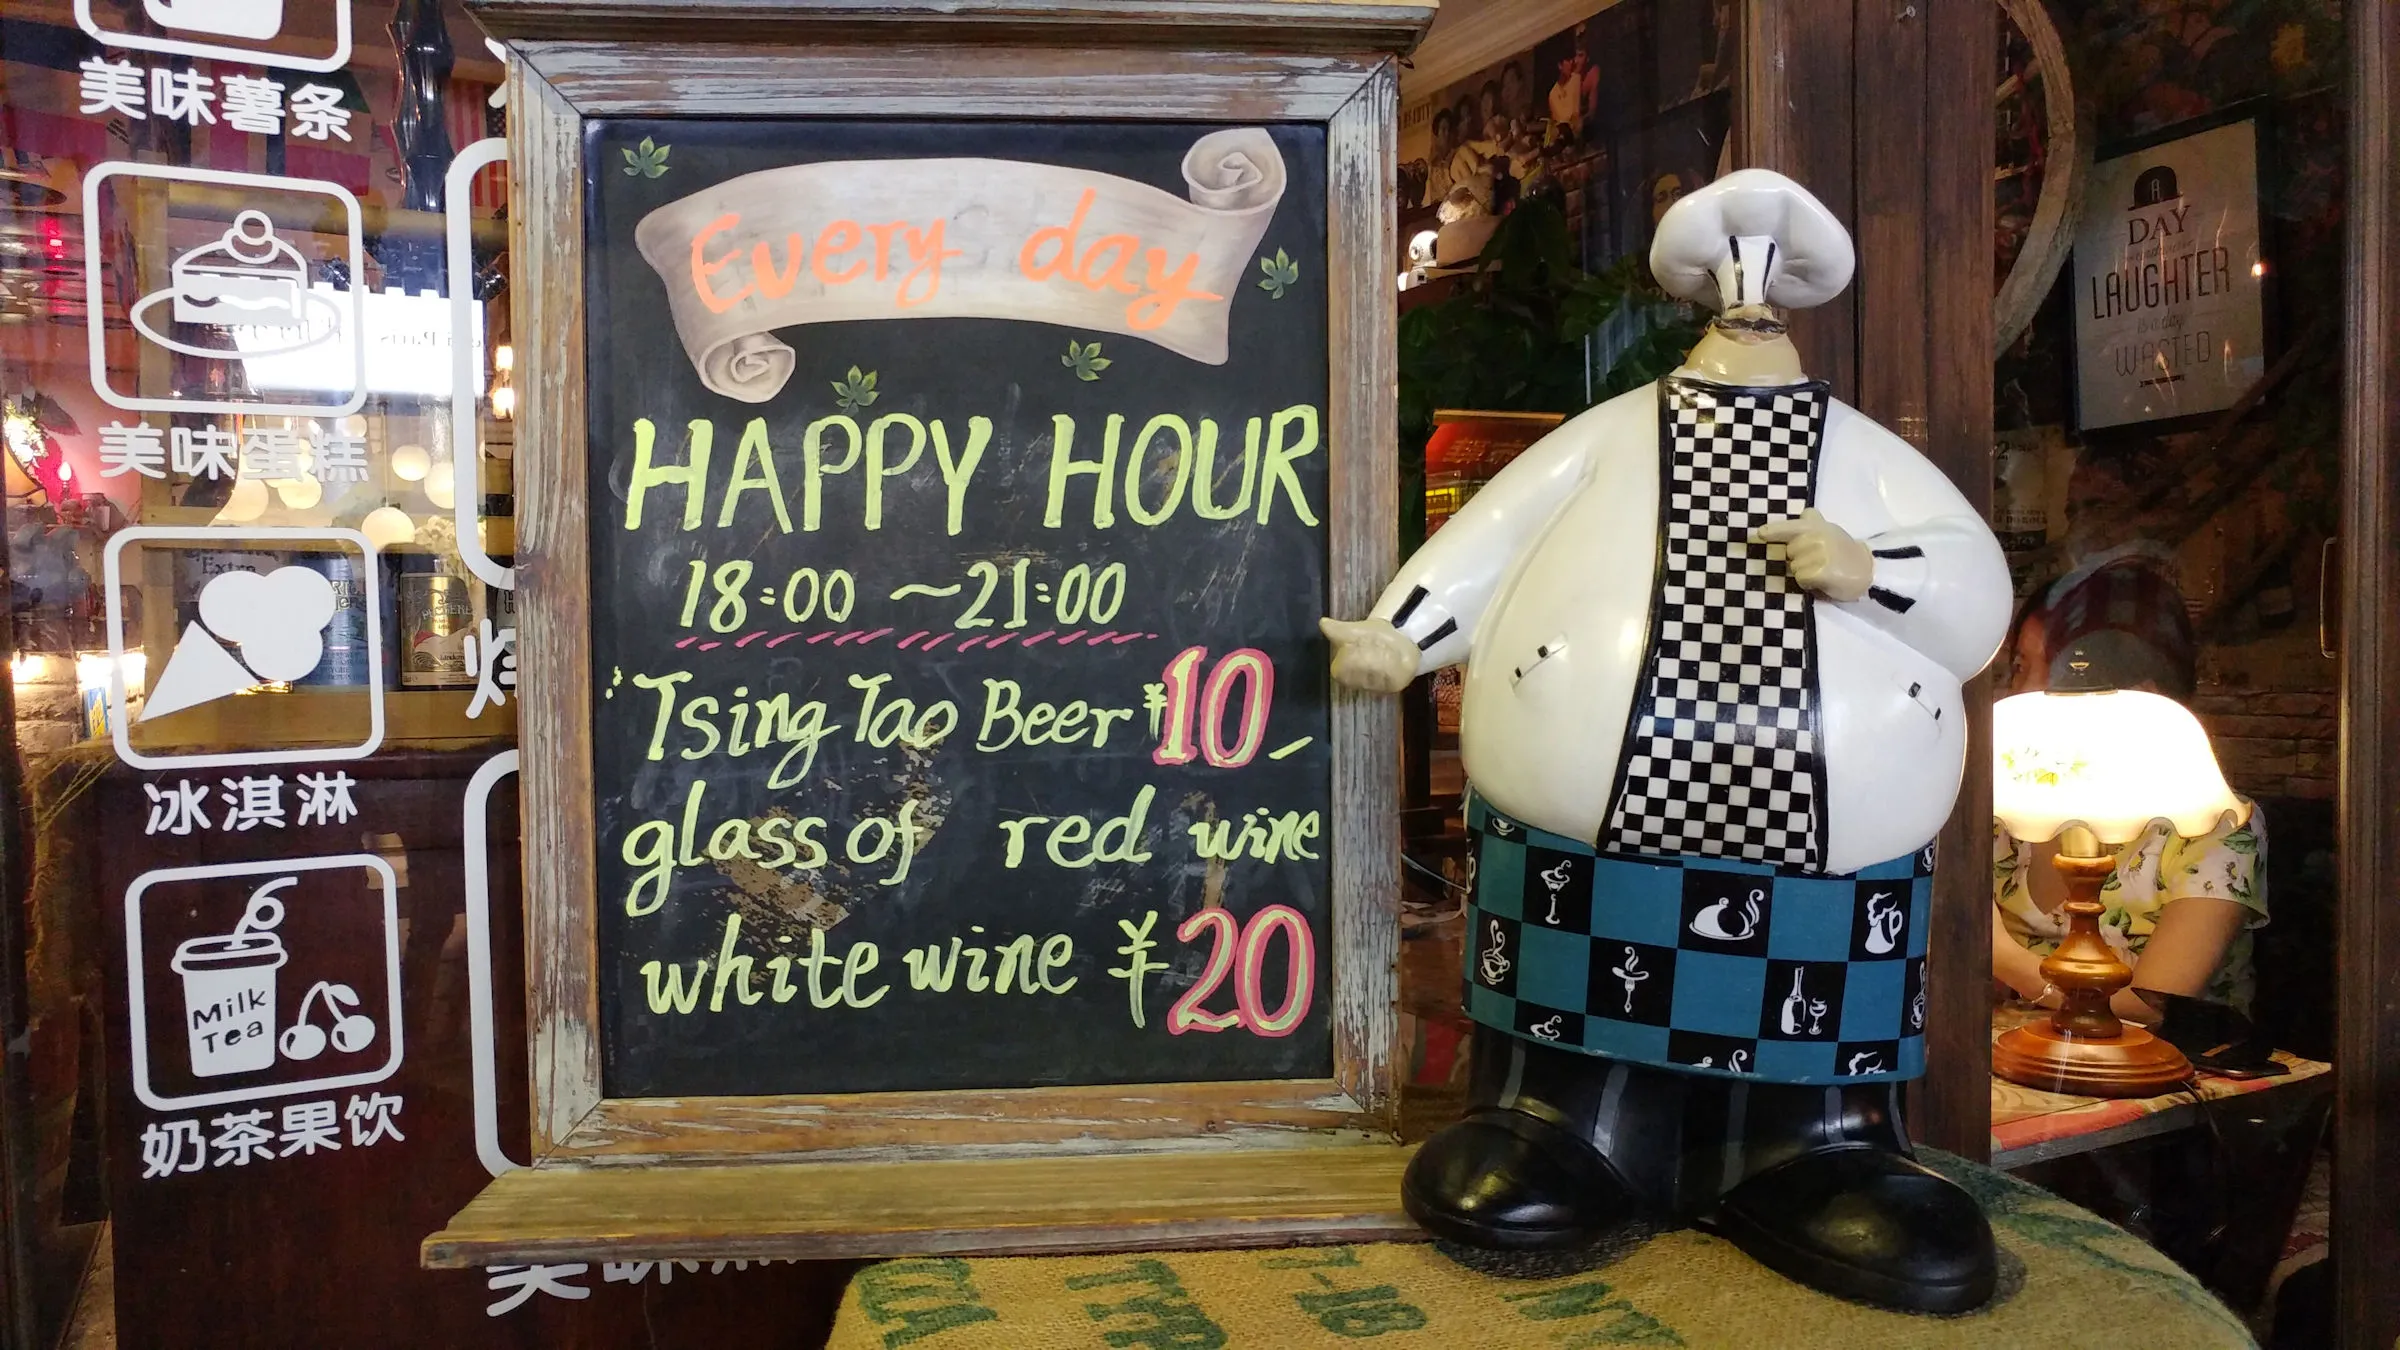 美味薯条
美味蛋糕
冰淇淋
Milk
Tea
奶茶果饮
Every day
HAPPY HOUR
18:00 ~21:00
Tsing Tao Beer ¥10
glass of red wine
white wine ¥20
A
DAY
without
LAUGHTER
is a day
WASTED
Extra
美味